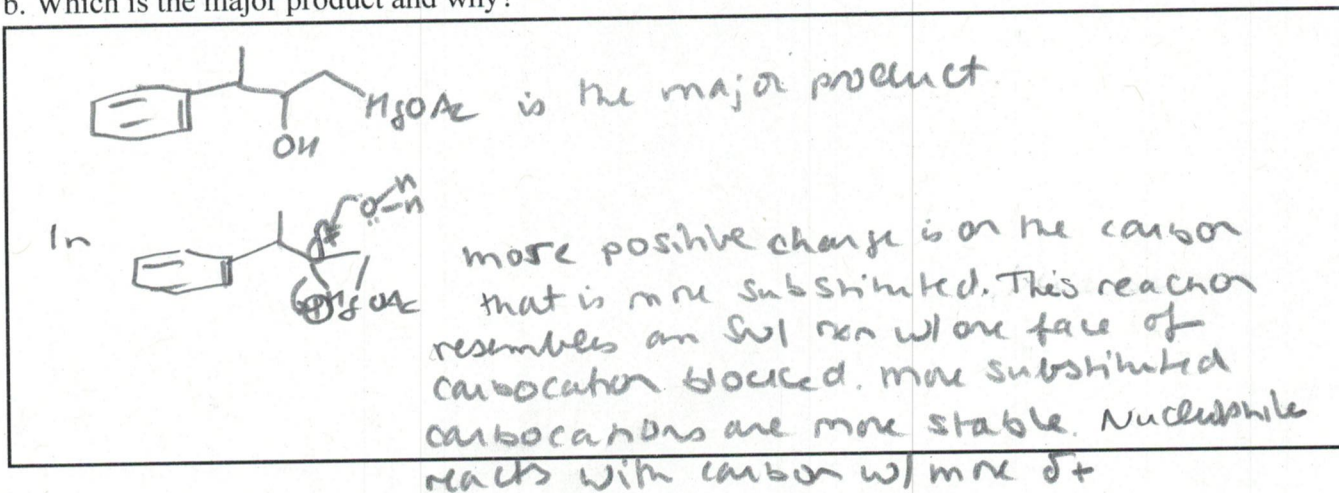 b. Which is the major product and why?
HgOAc is the major product
OH
In
O H
H
δ+
⊕Hg OAc
more positive charge is on the carbon
that is more substituted. This reaction
resembles an SN1 rxn w/ one face of
carbocation blocked. more substituted
carbocations are more stable. Nucleophile
reacts with carbon w/ more δ+